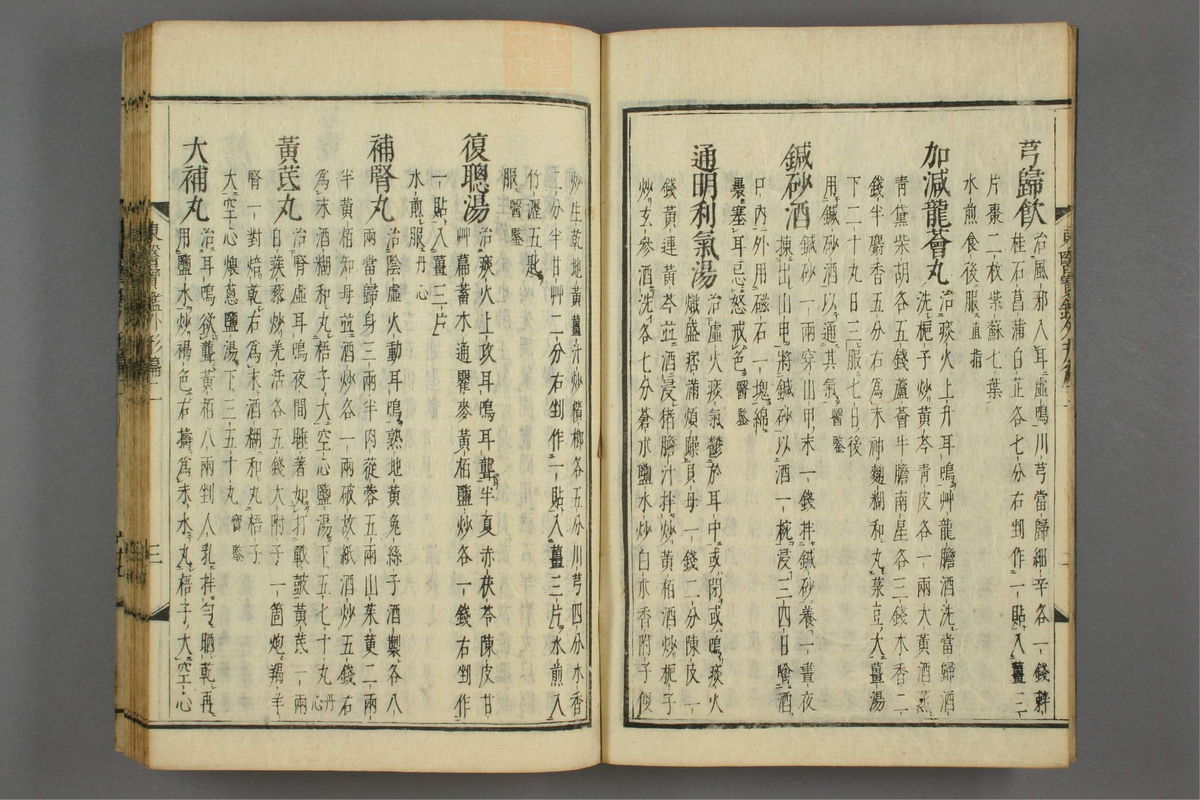 芎歸飮治風邪入耳虛鳴川芎當歸細辛各一錢
桂石菖蒲白芷各七分右剉作一貼入薑三
片棗二枚紫蘇七葉
水煎食後服直指
加減龍薈丸治痰火上升耳鳴艸龍膽酒洗當歸酒
洗梔子炒黃芩靑皮各一兩大黃酒蒸
靑黛柴胡各五錢蘆薈牛膽南星各三錢木香二
錢半麝香五分右爲末神麴糊和丸菉豆大薑湯
下二十丸日三服七日後
用鍼砂酒以通其氣醫鑒
鍼砂酒鍼砂一兩穿山甲末一錢拌鍼砂養一晝夜
揀出山甲將鍼砂以酒一椀浸三四日噙酒
口內外用磁石一塊綿
褁塞耳忌怒戒色醫鑒
通明利氣湯治虛火痰氣鬱於耳中或閉或鳴痰火
熾盛痞滿煩躁貝母一錢二分陳皮一
錢黃連黃芩並酒浸猪膽汁拌炒黃栢酒炒梔子
炒玄參酒洗各七分蒼朮鹽水炒白朮香附子便
炒生乾地黃薑汁炒檳榔各五分川芎四分木香
二分半甘艸二分右剉作一貼入薑三片水煎入
竹瀝五匙
服醫鑒
復聰湯治痰火上攻耳鳴耳聾半夏赤茯苓陳皮甘
艸萹蓄木通瞿麥黃栢鹽炒各一錢右剉作
一貼入薑三片
水煎服丹心
補腎丸治陰虛火動耳鳴熟地黃兔絲子酒製各八
兩當歸身三兩半肉蓯蓉五兩山茱萸二兩
半黃栢知母並酒炒各一兩破故紙酒炒五錢右
爲末酒糊和丸梧子大空心鹽湯下五七十丸丹心
黃芪丸治腎虛耳鳴夜間睡著如打戰皷黃芪一兩
白蒺藜炒羌活各五錢大附子一箇炮羯羊
腎一對焙乾右爲末酒糊和丸梧子
大空心煨葱鹽湯下三五十丸寶鑒
大補丸治耳鳴欲聾黃栢八兩剉人乳拌勻晒乾再
用鹽水炒褐色右擣爲末水丸梧子大空心
東醫寶鑑外形篇二
三